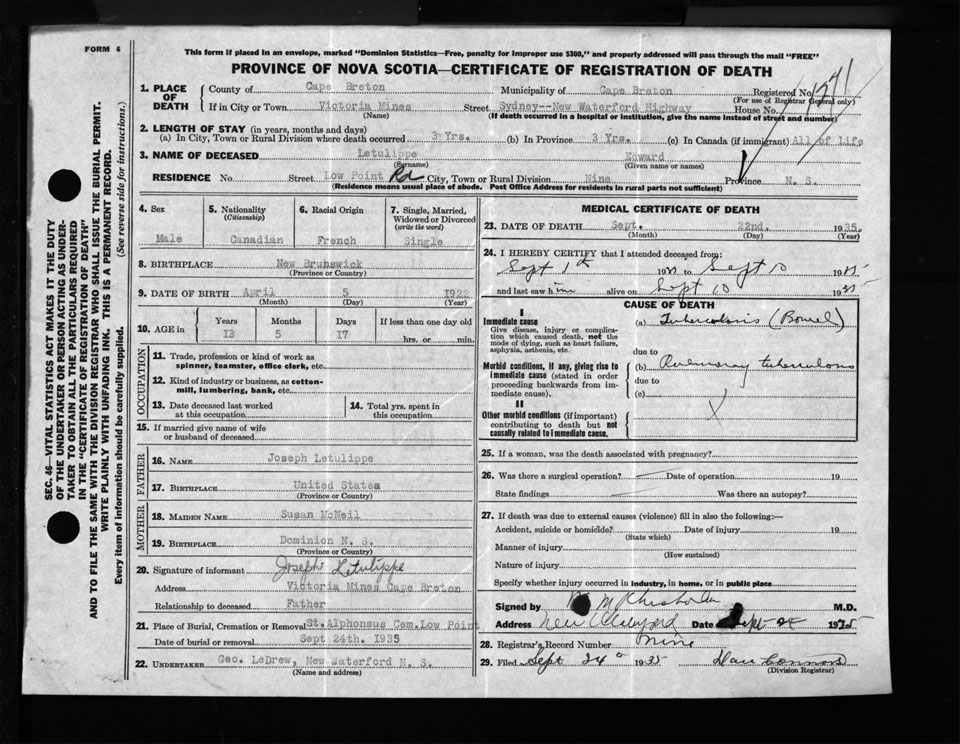 FORM 6
This form if placed in an envelope, marked "Dominion Statistics—Free, penalty for improper use $300," and properly addressed will pass through the mail "FREE"
PROVINCE OF NOVA SCOTIA—CERTIFICATE OF REGISTRATION OF DEATH
1. PLACE OF DEATH
County of Cape Breton Municipality of Cape Breton Registered No.
(For use of Registrar General only)
If in City or Town Victoria Mines Street Sydney--New Waterford Highway House No.
(Name) (If death occurred in a hospital or institution, give the name instead of street and number)
2. LENGTH OF STAY (in years, months and days)
(a) In City, Town or Rural Division where death occurred 3 Yrs. (b) In Province 3 Yrs. (c) In Canada (if immigrant) All of Life
3. NAME OF DECEASED Letulippe Edward
(Surname) (Given name or names)
RESIDENCE No. Street Low Point Rd City, Town or Rural Division Nine Province N. S.
(Residence means usual place of abode. Post Office Address for residents in rural parts not sufficient)
SEC. 46—VITAL STATISTICS ACT MAKES IT THE DUTY
OF THE UNDERTAKER OR PERSON ACTING AS UNDER-
TAKER TO OBTAIN ALL THE PARTICULARS REQUIRED
IN THE "CERTIFICATE OF REGISTRATION OF DEATH"
AND TO FILE THE SAME WITH THE DIVISION REGISTRAR WHO SHALL ISSUE THE BURIAL PERMIT.
WRITE PLAINLY WITH UNFADING INK. THIS IS A PERMANENT RECORD.
Every item of information should be carefully supplied. (See reverse side for instructions.)
4. Sex
Male
5. Nationality
(Citizenship)
Canadian
6. Racial Origin
French
7. Single, Married,
Widowed or Divorced
(write the word)
Single
8. BIRTHPLACE New Brunswick
(Province or Country)
9. DATE OF BIRTH April 5 1922
(Month) (Day) (Year)
10. AGE in Years Months Days If less than one day old
13 5 17 hrs. or min.
OCCUPATION
11. Trade, profession or kind of work as
spinner, teamster, office clerk, etc.
12. Kind of industry or business, as cotton-
mill, lumbering, bank, etc.
13. Date deceased last worked
at this occupation
14. Total yrs. spent in
this occupation
15. If married give name of wife
or husband of deceased
FATHER
16. NAME Joseph Letulippe
17. BIRTHPLACE United States
(Province or Country)
MOTHER
18. MAIDEN NAME Susan McNeil
19. BIRTHPLACE Dominion N. S.
(Province or Country)
20. Signature of informant Joseph Letulippe
Address Victoria Mines Cape Breton
Relationship to deceased Father
21. Place of Burial, Cremation or Removal St. Alphonsus Cem. Low Point
Date of burial or removal Sept 24th. 1935
22. UNDERTAKER Geo. LeDrew, New Waterford N. S.
(Name and address)
MEDICAL CERTIFICATE OF DEATH
23. DATE OF DEATH Sept. 22nd. 1935.
(Month) (Day) (Year)
24. I HEREBY CERTIFY that I attended deceased from:
Sept 1st 1935 to Sept 10 1935
and last saw him alive on Sept 10 1935
CAUSE OF DEATH
I
Immediate cause
Give disease, injury or complica-
tion which caused death, not the
mode of dying, such as heart failure,
asphyxia, asthenia, etc.
(a) Tuberculosis (Bowel)
due to
Morbid conditions, if any, giving rise to
immediate cause (stated in order
proceeding backwards from im-
mediate cause).
(b) Pulmonary tuberculosis
due to
(c)
II
Other morbid conditions (if important)
contributing to death but not
causally related to immediate cause.
25. If a woman, was the death associated with pregnancy?
26. Was there a surgical operation? Date of operation 19
State findings Was there an autopsy?
27. If death was due to external causes (violence) fill in also the following:—
Accident, suicide or homicide? Date of injury 19
(State which)
Manner of injury
(How sustained)
Nature of injury
Specify whether injury occurred in industry, in home, or in public place
Signed by M Chisholm M.D.
Address New Waterford Date Sept 24 1935
28. Registrar's Record Number nine
29. Filed Sept 24 1935 Dan Connors
(Division Registrar)